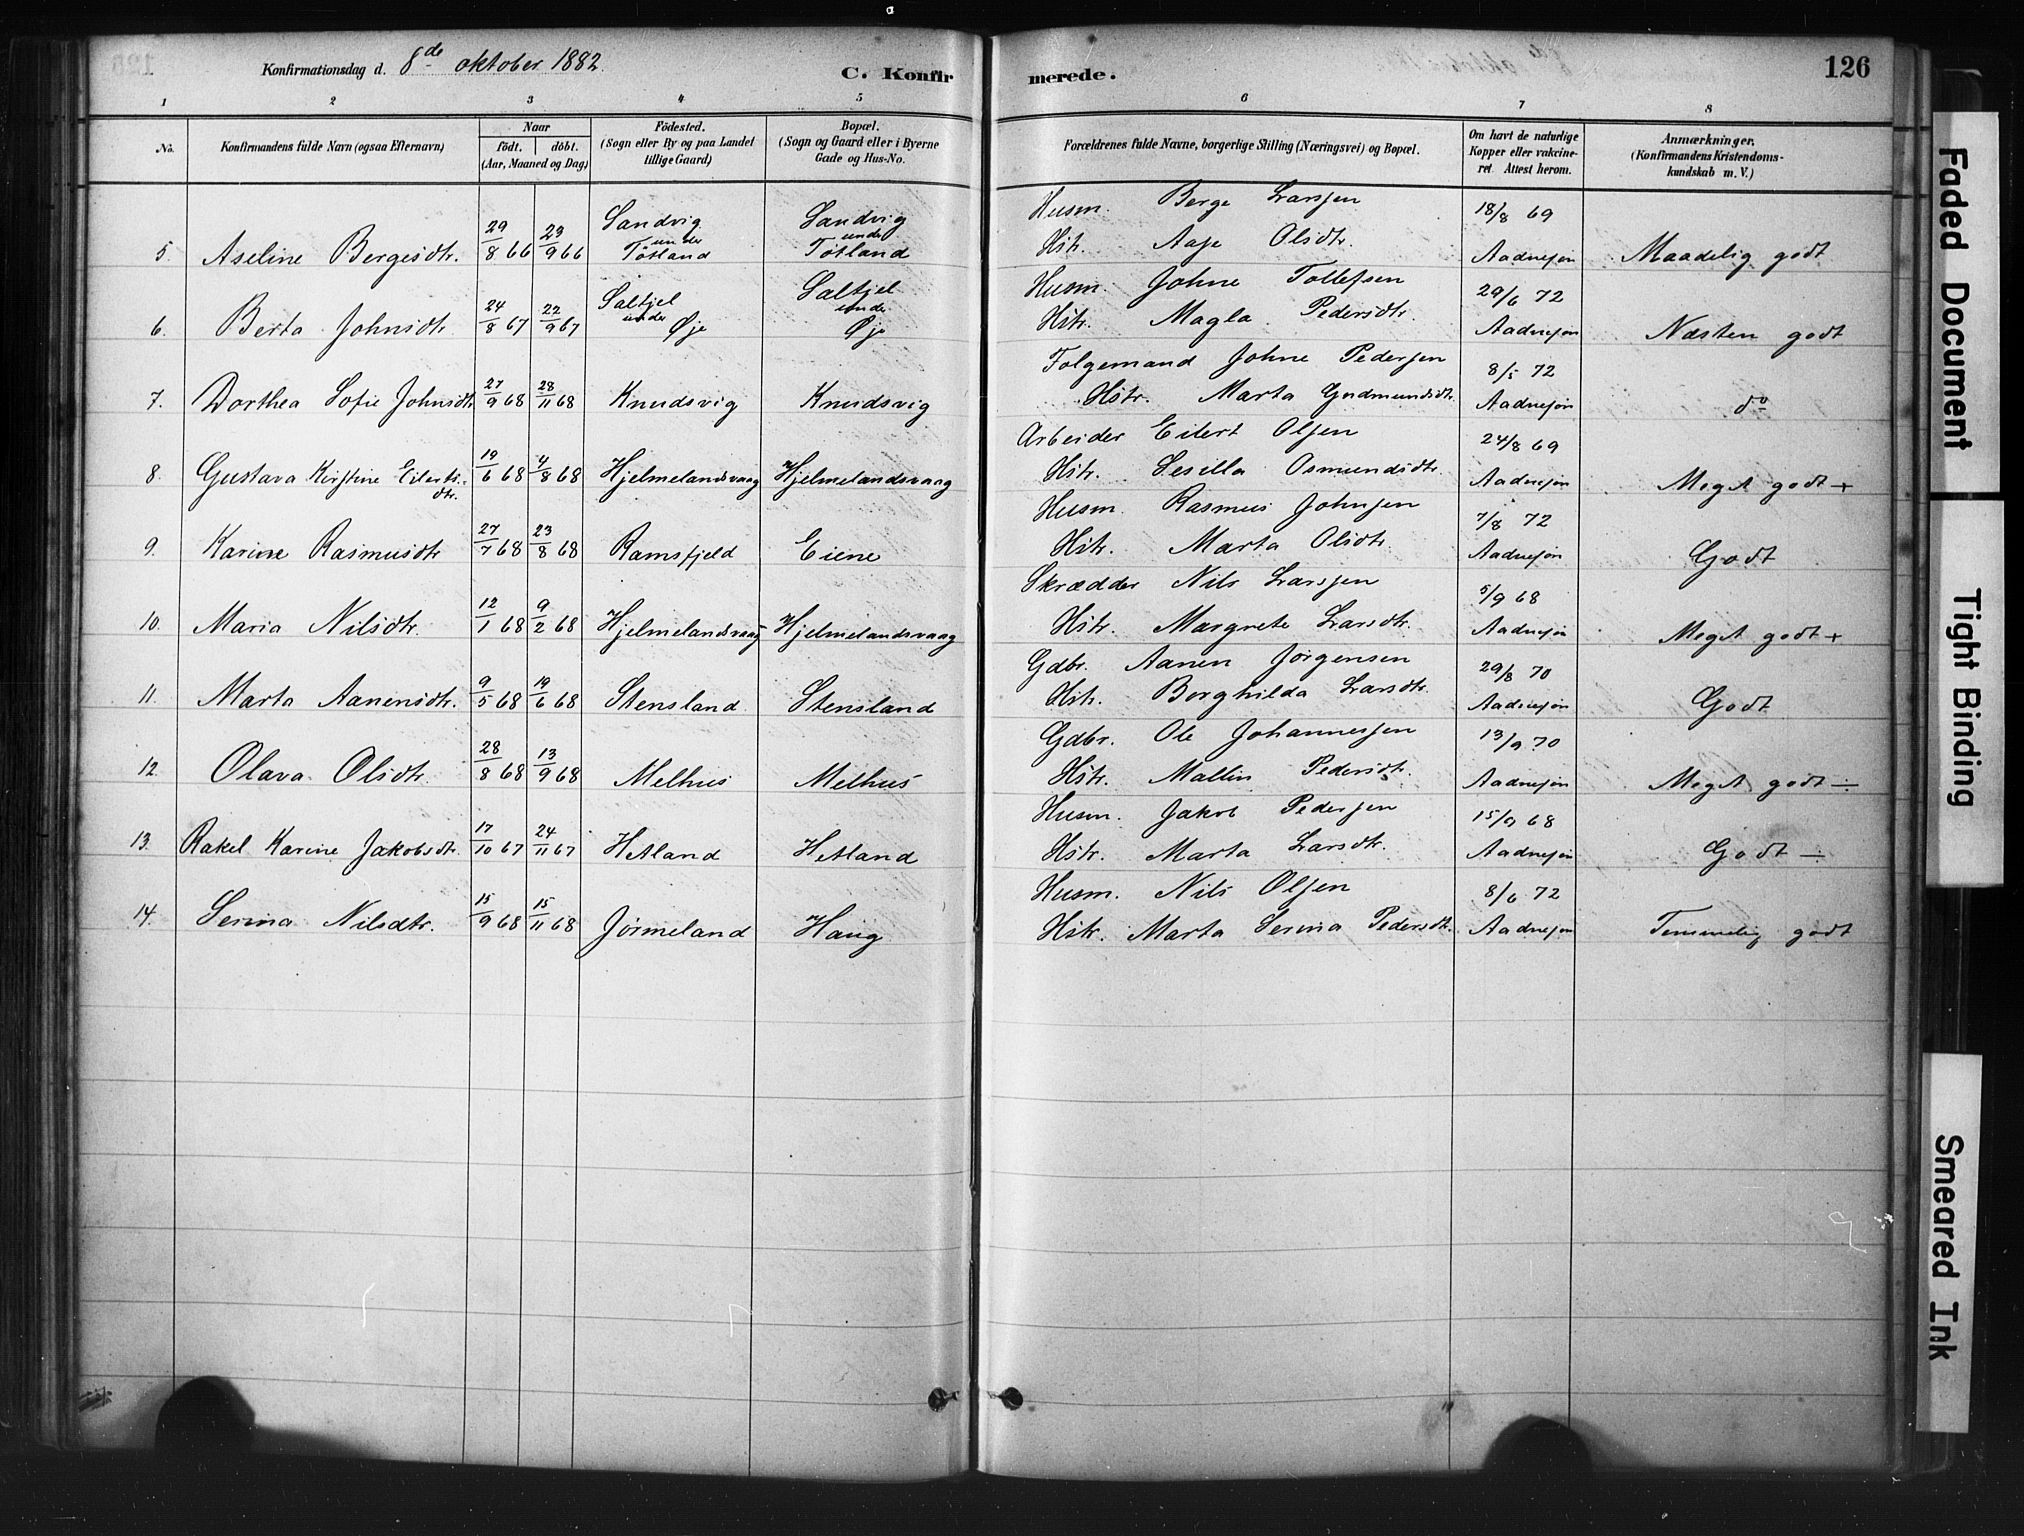 Konfirmationsdag d. 8de oktober 1882.
C. Konfirmerede.
126
1 2 3 4 5 6 7 8
No.
Konfirmandens fulde Navn (ogsaa Efternavn)
Naar
födt. döbt.
(Aar, Maaned og Dag)
Födested.
(Sogn eller By og paa Landet
tillige Gaard)
Bopæl.
(Sogn og Gaard eller i Byerne
Gade og Hus-No.
Forældrenes fulde Navne, borgerlige Stilling (Næringsvei) og Bopæl.
Om havt de naturlige
Kopper eller vakcine-
ret. Attest herom.
Anmærkninger.
(Konfirmandens Kristendoms-
kundskab m. V.)
Sandvig Sandvig Husm. Berge Larsen 18/8 69
5. Aseline Bergesdtr. 29/8 66 23/9 66 under Tøtland under Tøtland Hstr. Aase Olsdtr. Aadnesøn Maadelig godt
Saltjel Saltjel Husm. Johne Tollefsen 29/6 72
6. Berta Johnsdtr. 24/8 67 22/9 67 under Øje under Øje Hstr. Magla Pedersdtr. Aadnesøn Næsten godt
Folgemand Johne Pedersen 8/5 72
7. Dorthea Sofie Johnsdtr. 27/9 68 28/11 68 Knudsvig Knudsvig Hstr. Marta Gudmundsdtr. Aadnesøn do
Arbeider Eilert Olsen 24/8 69
8. Gustava Kirstine Eilerts- 19/6 68 4/8 68 Hjelmelandsvaag Hjelmelandsvaag Hstr. Sesilla Osmundsdtr. Aadnesøn Meget godt +
dtr.
Husm. Rasmus Johnsen 7/8 72
9. Karine Rasmusdtr 27/7 68 23/8 68 Ramsfjeld Eiene Hstr. Marta Olsdtr. Aadnesøn Godt
Skrædder Nils Larsen 5/9 68
10. Maria Nilsdtr. 12/1 68 9/2 68 Hjelmelandsvaag Hjelmelandsvaag Hstr. Margrete Larsdtr. Aadnesøn Meget godt +
Gdbr. Aanen Jørgensen 29/8 70
11. Marta Aanensdtr. 9/5 68 19/6 68 Stensland Stensland Hstr. Borghilda Larsdtr. Aadnesøn Godt
Gdbr. Ole Johannesen 13/9 70
12. Olava Olsdtr. 28/8 68 13/9 68 Melhus Melhus Hstr. Mallin Pedersdtr. Aadnesøn Meget godt ÷
Husm. Jakob Pedersen 15/9 68
13. Rakel Karine Jakobsdtr. 17/10 67 24/11 67 Hetland Hetland Hstr. Marta Larsdtr. Aadnesøn Godt —
Husm. Nils Olsen 8/6 72
14. Serina Nilsdtr. 15/9 68 15/11 68 Jørmeland Haug Hstr. Marta Serina Pedersdtr. Aadnesøn Temmelig godt
Faded Document
Tight Binding
Smeared Ink